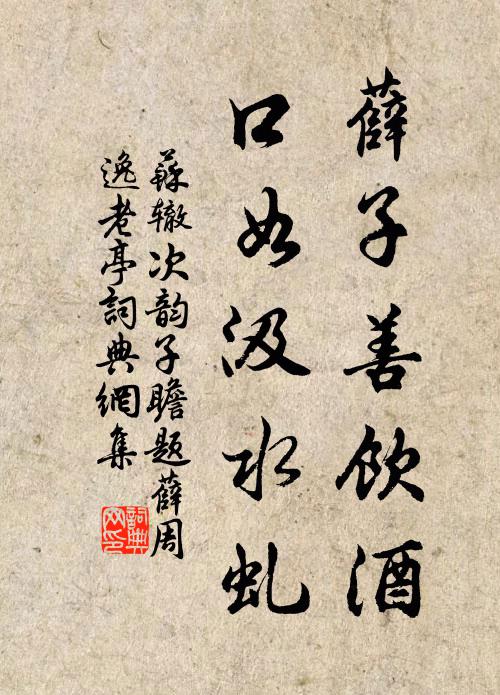 薛子善飲酒
口如汲水虬
蘇辙次韵子瞻題薛周
逸老亭詞典網集
詞典网印